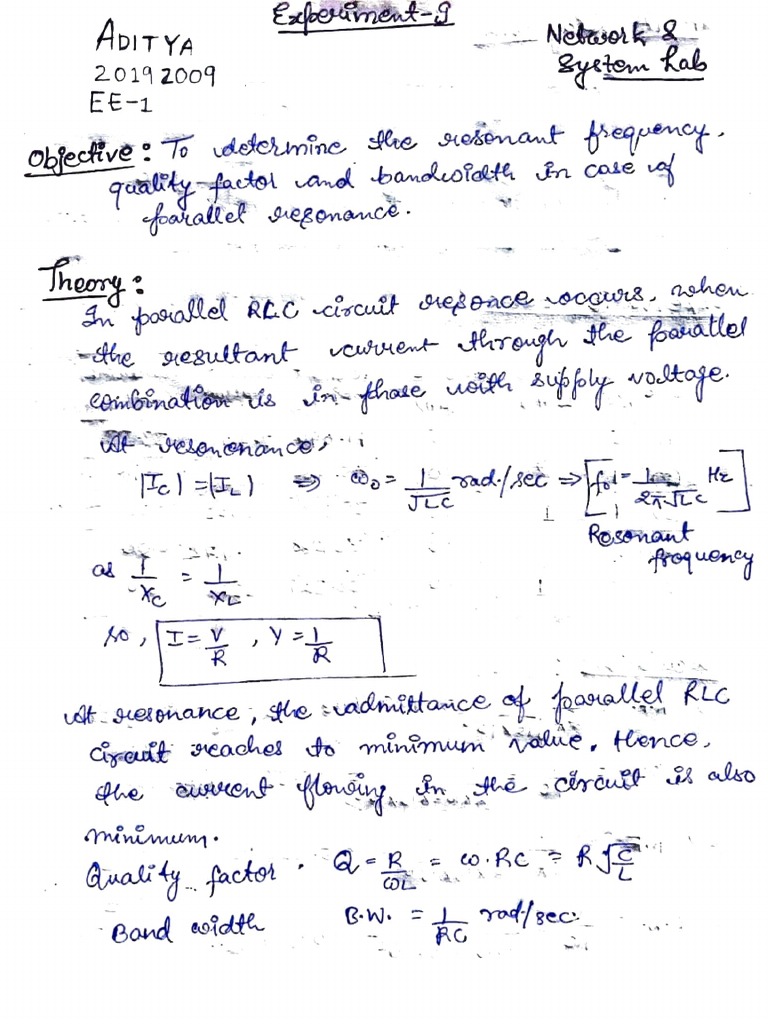 Experiment-9
ADITYA
Network &
System Lab
20192009
EE-1
Objective: To determine the resonant frequency,
quality factor and bandwidth in case of
parallel resonance.
Theory:
In parallel RLC circuit resonce occurs, when
the resultant current through the parallel
combination is in-phase with supply voltage.
At resonenance,
|IC| = |IL| ⇒ ω0 = 1/√LC rad/sec ⇒ [f0 = 1/2π√LC Hz]
Resonant
frequency
as 1/XC = 1/XL
so, I = V/R , Y = 1/R
At resonance, the admittance of parallel RLC
circuit reaches to minimum value. Hence,
the current flowing in the circuit is also
minimum.
Quality factor. Q = R/ωL = ω.RC = R√C/L
Band width B.W. = 1/RC rad/sec.